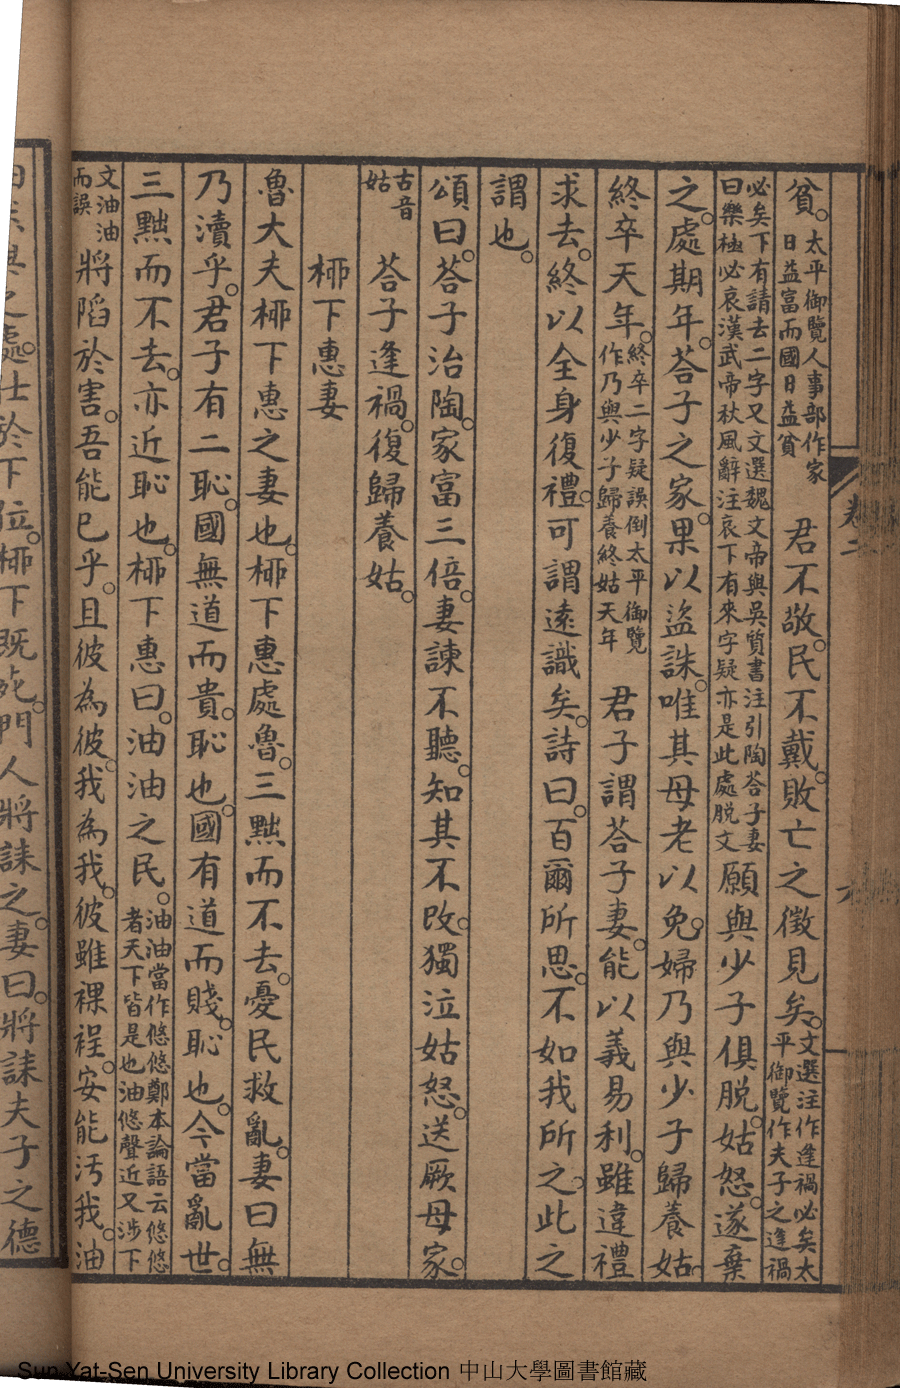 卷二
六
貧。太平御覽人事部作家日益富而國日益貧君不敬。民不戴。敗亡之徵見矣。文選注作逢禍必矣太平御覽作夫子之逢禍
必矣下有請去二字又文選魏文帝與吳質書注引陶荅子妻曰樂極必哀漢武帝秋風辭注哀下有來字疑亦是此處脫文願與少子俱脫。姑怒。遂棄
之。處期年。荅子之家。果以盜誅。唯其母老以免。婦乃與少子歸養姑。
終卒天年。終卒二字疑誤倒太平御覽作乃與少子歸養終姑天年君子謂荅子妻。能以義易利。雖違禮
求去。終以全身復禮。可謂遠識矣。詩曰。百爾所思。不如我所之。此之
謂也。
頌曰。荅子治陶。家富三倍。妻諫不聽。知其不改。獨泣姑怒。送厥母家。
古音姑荅子逢禍。復歸養姑。
桺下惠妻
魯大夫桺下惠之妻也。桺下惠處魯。三黜而不去。憂民救亂。妻曰無
乃瀆乎。君子有二恥。國無道而貴。恥也。國有道而賤。恥也。今當亂世。
三黜而不去。亦近恥也。桺下惠曰。油油之民。油油當作悠悠鄭本論語云悠悠者天下皆是也油悠聲近又涉下
文油油而誤將陷於害。吾能已乎。且彼為彼。我為我。彼雖裸裎。安能汚我。油
與之處。仕於下位。桺下既死。門人將誄之。妻曰。將誄夫子之德
Sun Yat-Sen University Library Collection 中山大學圖書館藏